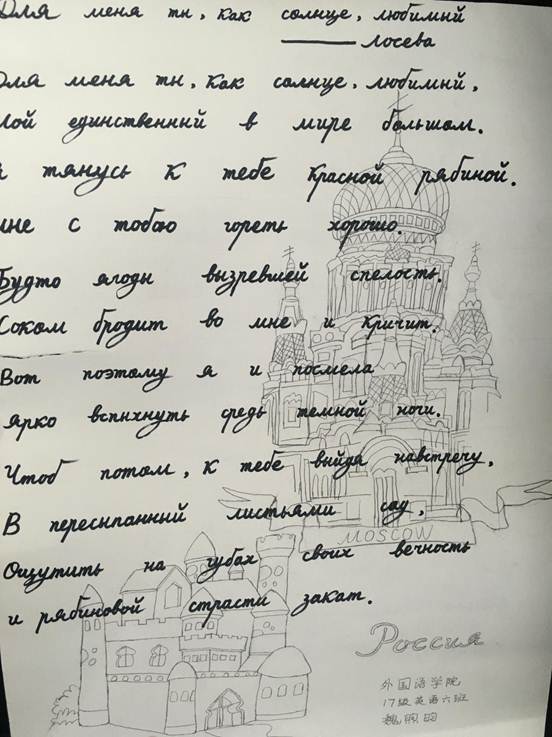 Для меня ты, как солнце, любимый
Лосева
Для меня ты, как солнце, любимый,
Мой единственный в мире большом.
Я тянусь к тебе красной рябиной.
Мне с тобою гореть хорошо.
Будто ягоды вызревшей спелость.
Соком бродит во мне и кричит.
Вот поэтому я и посмела
ярко вспыхнуть средь темной ночи.
Чтоб потом, к тебе выйдя навстречу,
В пересыпанный листьями сад,
Ощутить на губах своих вечность
и рябиновой страсти закат.
MOSCOW
Россия
外国语学院
17级英语六班